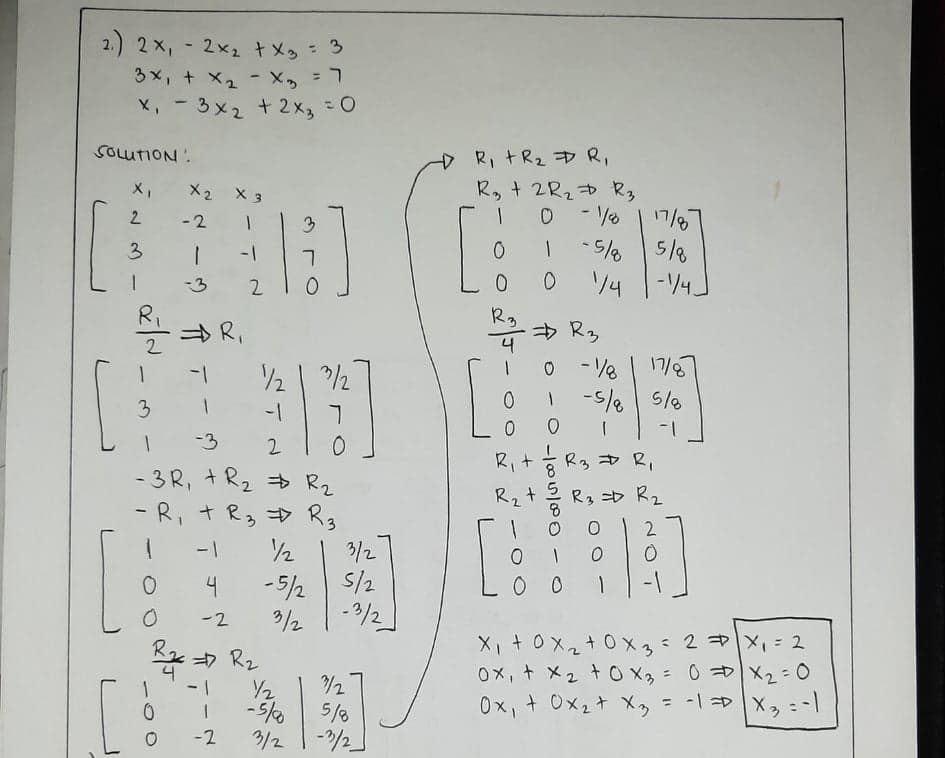 2.) 2x₁ - 2x₂ + x₃ = 3
3x₁ + x₂ - x₃ = 7
x₁ - 3x₂ + 2x₃ = 0
SOLUTION:
x₁ x₂ x₃
2 -2 1 | 3
3 1 -1 | 7
1 -3 2 | 0
R₁/2 ⇒ R₁
1 -1 1/2 | 3/2
3 1 -1 | 7
1 -3 2 | 0
-3R₁ + R₂ ⇒ R₂
-R₁ + R₃ ⇒ R₃
1 -1 1/2 | 3/2
0 4 -5/2 | 5/2
0 -2 3/2 | -3/2
R₂/4 ⇒ R₂
1 -1 1/2 | 3/2
0 1 -5/8 | 5/8
0 -2 3/2 | -3/2
R₁ + R₂ ⇒ R₁
R₃ + 2R₂ ⇒ R₃
1 0 -1/8 | 17/8
0 1 -5/8 | 5/8
0 0 1/4 | -1/4
R₃/4 ⇒ R₃
1 0 -1/8 | 17/8
0 1 -5/8 | 5/8
0 0 1 | -1
R₁ + 1/8 R₃ ⇒ R₁
R₂ + 5/8 R₃ ⇒ R₂
1 0 0 | 2
0 1 0 | 0
0 0 1 | -1
x₁ + 0x₂ + 0x₃ = 2 ⇒ x₁ = 2
0x₁ + x₂ + 0x₃ = 0 ⇒ x₂ = 0
0x₁ + 0x₂ + x₃ = -1 ⇒ x₃ = -1